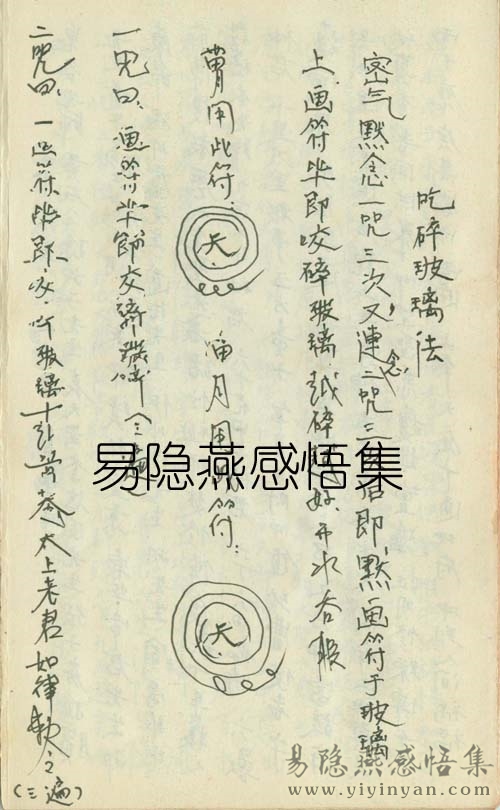 吃碎玻璃法
密气默念一咒三次又连念二咒三次后即默画符于玻璃
上画符毕即咬碎玻璃越碎越好开水吞服
用此符
天
月用符
天
一咒曰画符毕即咬碎玻璃(三遍)
二咒曰一画符毕即咬碎玻璃太上老君如律敕令
(三遍)
易隐燕感悟集
易隐燕感悟集
www.yiyinyan.com